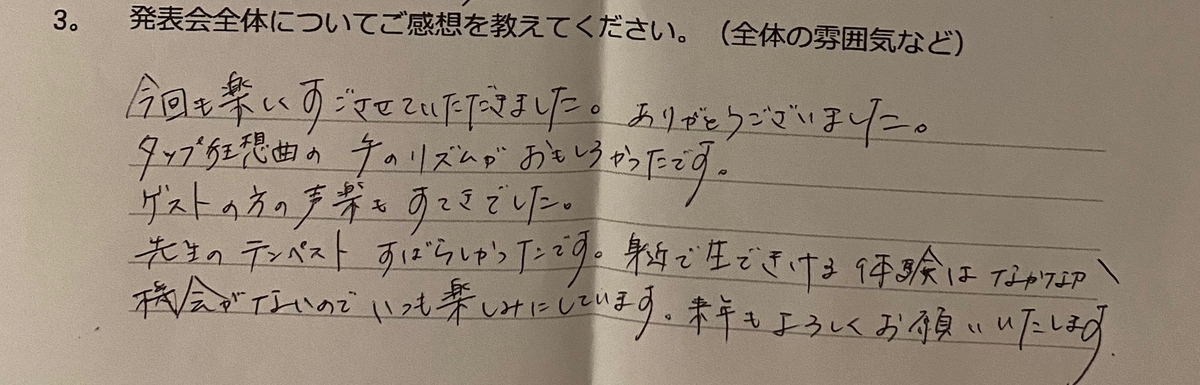 3。 発表会全体についてご感想を教えてください。（全体の雰囲気など）
今回も楽しくすごさせていただきました。ありがとうございました。
タップ狂想曲の手のリズムがおもしろかったです。
ゲストの方の声楽もすてきでした。
先生のテンペストすばらしかったです。身近で生できける体験はなかなか
機会がないのでいつも楽しみにしています。来年もよろしくお願いいたします